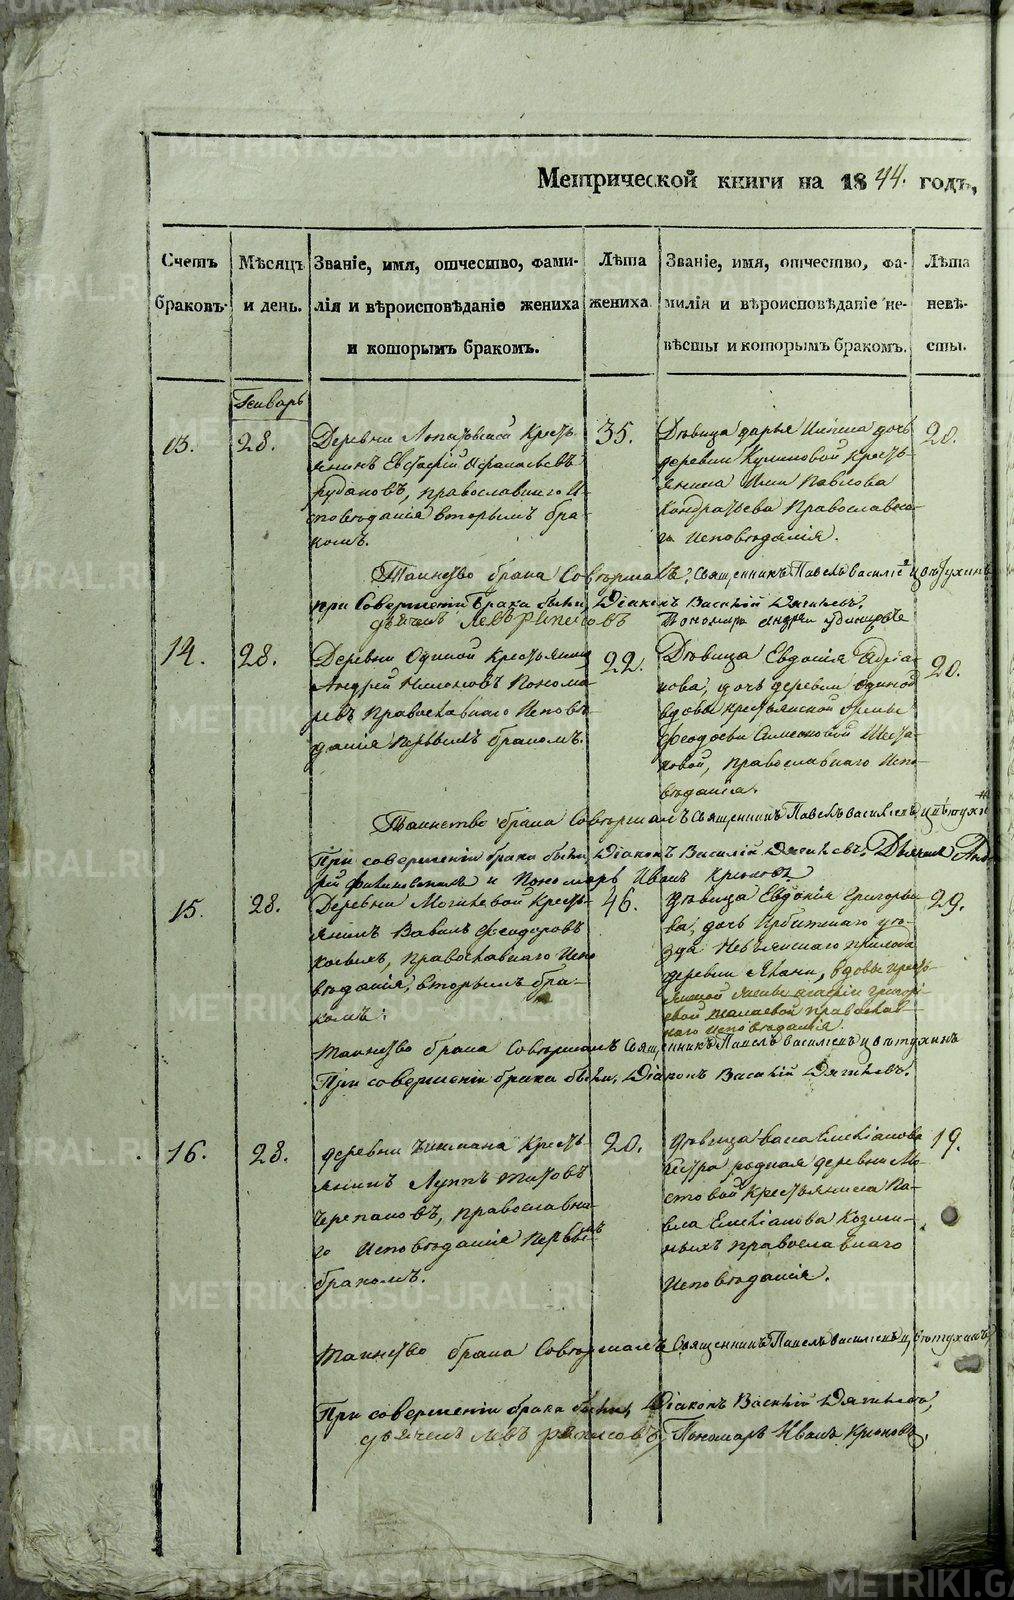 Метрической книги на 1844. годъ,
Счетъ браковъ.
Мѣсяцъ и день.
Званіе, имя, отчество, фами-
лія и вѣроисповѣданіе жениха
и которымъ бракомъ.
Лѣта жениха.
Званіе, имя, отчество, фа-
милія и вѣроисповѣданіе не-
вѣсты и которымъ бракомъ.
Лѣта невѣ-
сты.
Генварь
13.
28.
Деревни Крестъ-
янинъ Евстафій
православнаго И-
сповѣданія вторымъ бра-
комъ.
35.
Дѣвица дарья дочь
деревни Куликовой кресть-
янина Павлова
Кондратьева Православна-
го Исповѣданія.
20.
Таинство брака Совершалъ, Священникъ Павелъ Василіевъ Цвѣтухинъ
при Совершеніи брака были, Діаконъ Василій Дягилевъ.
дьячекъ Левъ Пономарь Андрей Удинцовъ
14.
28.
Деревни Одиной крестьянинъ
Андрей Понома-
ревъ Православнаго Исповѣ-
данія первымъ бракомъ.
22.
Дѣвица Евдокія Адріа-
нова, дочь деревни Одиной
вдовы крестьянской жены
Феодосьи Симеоновой
православнаго Испо-
вѣданія.
20.
Таинство брака Совершалъ Священникъ Павелъ Василіевъ Цвѣтухинъ
При совершеніи брака были, Діаконъ Василій Дягилевъ. Дьячекъ Анд-
рей и Пономарь Иванъ Крюковъ
15.
28.
Деревни Могилевой Кресть-
янинъ Вавилъ Феодоровъ
православнаго Испо
вѣданія, вторымъ бра-
комъ.
46.
Дѣвица Евдокія Григорье-
ва, дочь Ирбитскаго уѣ-
зда Невьянскаго
деревни вдовы кресть-
янской жены Григорі-
евой православ-
наго Исповѣданія.
29.
Таинство брака Совершалъ Священникъ Павелъ Василіевъ Цвѣтухинъ
При совершеніи брака были, Діаконъ Василій Дягилевъ.
16.
28.
деревни Кресть-
янинъ Луппъ Титовъ
Черепановъ, православна-
го Исповѣданія Первымъ
бракомъ.
20.
Дѣвица Васса Емельянова
сестра родная деревни Мо-
стовой крестьянина Па-
вла Емельянова Козми-
ныхъ православнаго
Исповѣданія.
19.
Таинство брака Совершалъ Священникъ Павелъ Василіевъ Цвѣтухинъ,
При совершеніи брака были, Діаконъ Василій Дягилевъ,
дьячекъ Левъ Пономарь Иванъ Крюковъ.
METRIKI.GASO-URAL.RU